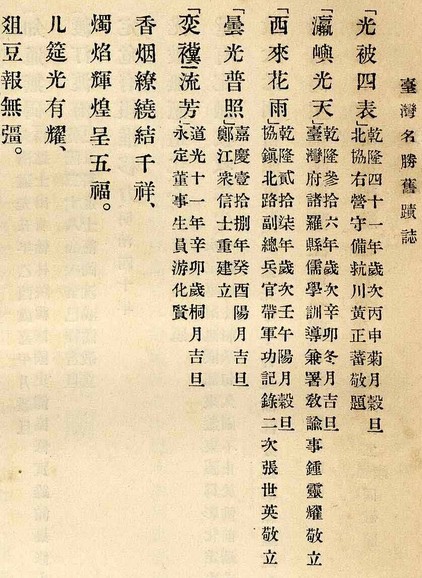 臺灣名勝舊蹟誌
「光被四表」
乾隆四十一年歲次丙申菊月穀旦
北協右營守備紞川黃正蕃敬題
「瀛嶼光天」
乾隆參拾六年歲次辛卯冬月吉旦
臺灣府諸羅縣儒學訓導兼署敎諭事鍾靈耀敬立
「西來花雨」
乾隆貳拾柒年歲次壬午陽月穀旦
協鎮北路副總兵官帶軍功記錄二次張世英敬立
「曇光普照」
嘉慶壹拾捌年癸酉陽月吉旦
鄭江衆信士重建立
「奕禩流芳」
道光十一年辛卯歲桐月吉旦
永定董事生員游化賢
香烟繚繞結千祥、
燭焰輝煌呈五福。
几筵光有耀、
爼豆報無疆。